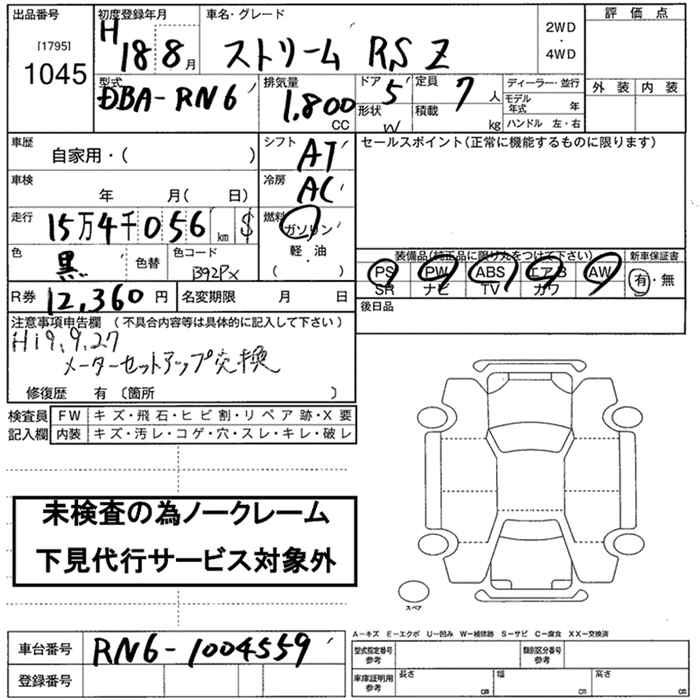 出品番号 初度登録年月 車名・グレード 2WD・4WD 評価点
[1795]
1045
H18 8月 ストリーム RSZ
型式 排気量 ドア 定員 ディーラー・並行 外装 内装
DBA-RN6 1,800 CC 5 7人
形状 積載 モデル年式 年
W kg ハンドル 左・右
車歴 シフト セールスポイント(正常に機能するものに限ります)
自家用・( ) AT
車検 冷房
年 月( 日) AC
走行 燃料
15万4千056 km $ ガソリン
軽・油
( )
色 色替 色コード
黒 B92Px
装備品(純正品に限り丸をつけて下さい) 新車保証書
PS PW ABS エアB AW 有・無
SR ナビ TV カワ
R券 12,360円 名変期限 月 日 後日品
注意事項申告欄 (不具合内容等は具体的に記入して下さい)
H19.9.27
メーターセットアップ交換
修復歴 有 〔箇所 〕
検査員 FW キズ・飛石・ヒビ割・リペア跡・X要
記入欄 内装 キズ・汚レ・コゲ・穴・スレ・キレ・破レ
未検査の為ノークレーム
下見代行サービス対象外
スペア
A−キズ E−エクボ U−凹み W−補修跡 S−サビ C−腐食 XX−交換済
車台番号 RN6-1004559 型式指定番号 参考 類別区分番号 参考
登録番号 車庫証明用 参考 長さ cm 幅 cm 高さ cm